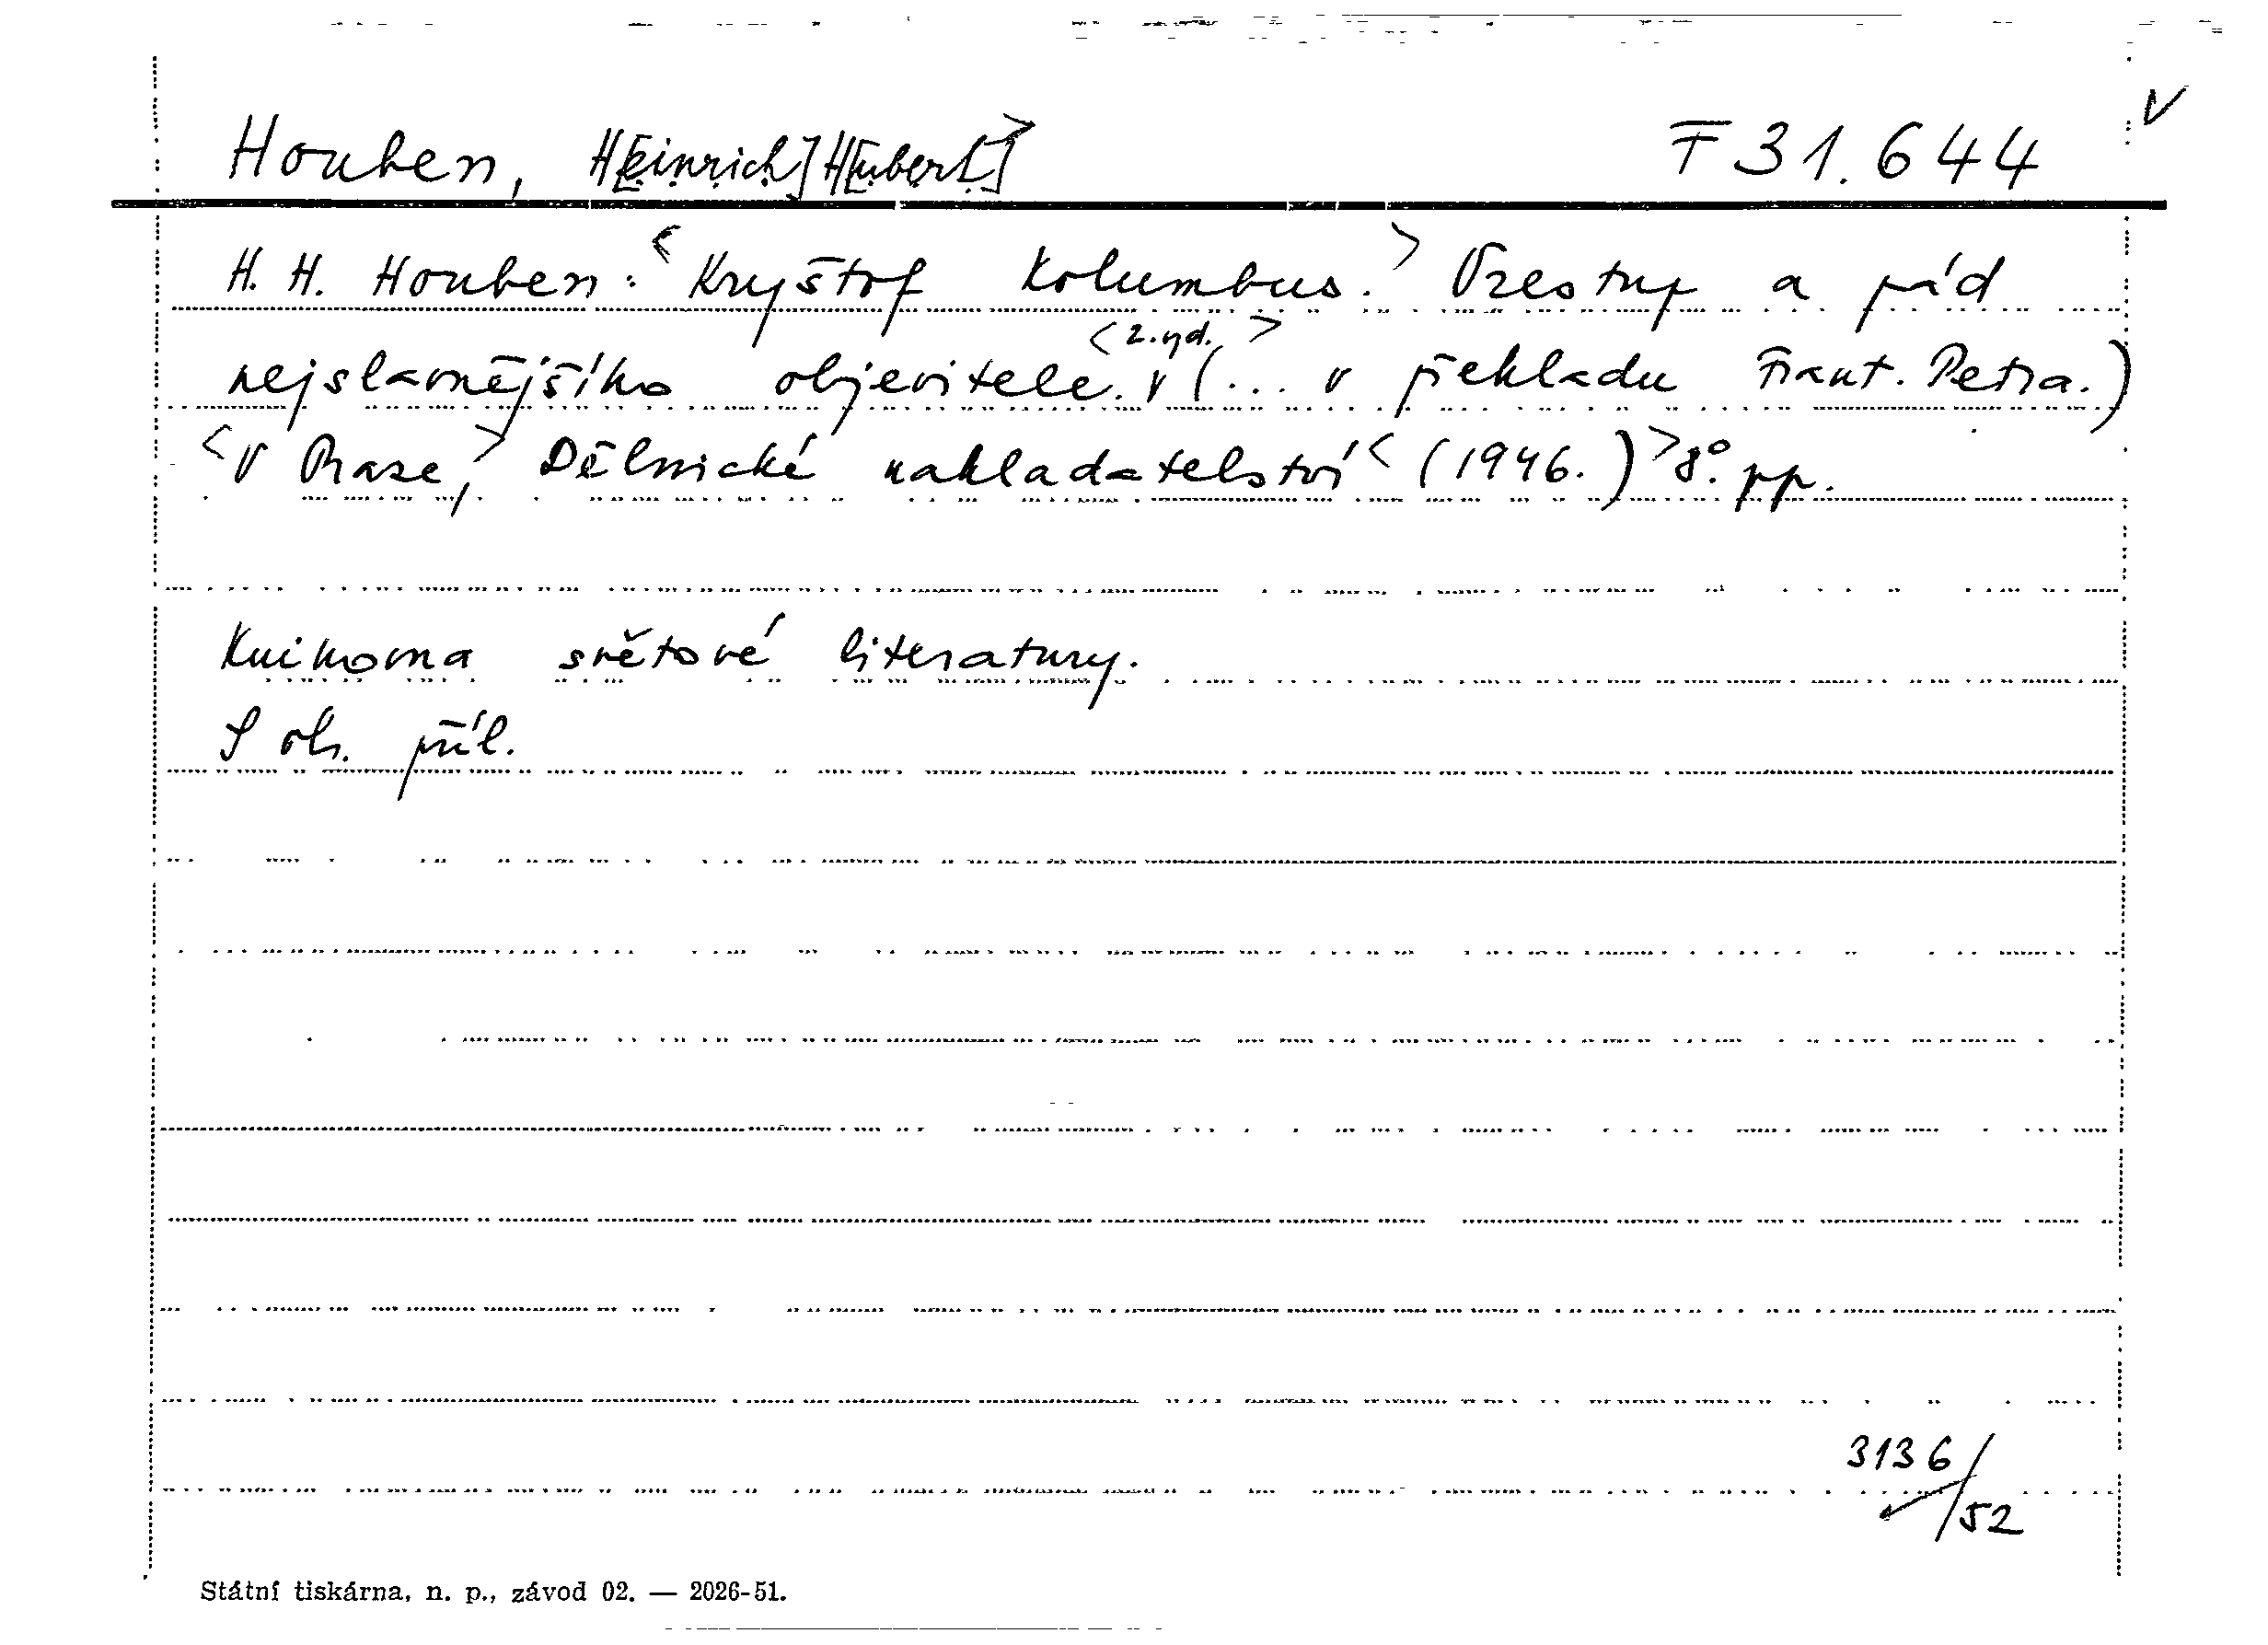 Houben, H[einrich] H[ubert]> F 31.644 V
H. H. Houben: <Kryštof Kolumbus.> Vzestup a pád
<2. vyd.>
nejslavnějšího objevitele. v (... v překladu Frant. Petra.)
<V Praze,> Dělnické nakladatelství <(1946.)> 8°. pp.
Knihovna světové literatury.
S ob. příl.
3136/52
Státní tiskárna, n. p., závod 02. — 2026-51.